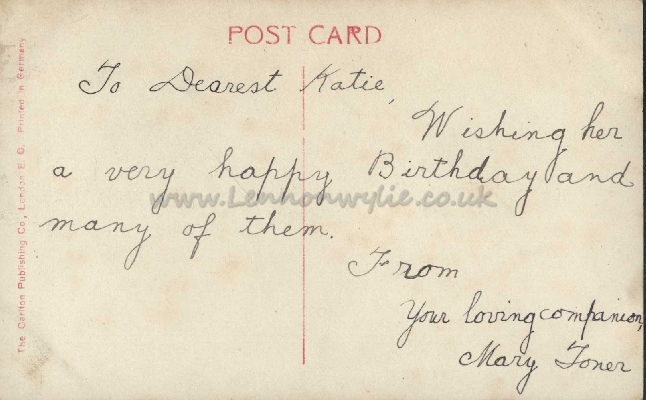 POST CARD
To Dearest Katie,
Wishing her
a very happy Birthday and
www.Lennonwylie.co.uk
many of them.
From
Your loving companion,
Mary Toner
The Carlton Publishing Co., London E. C. Printed in Germany